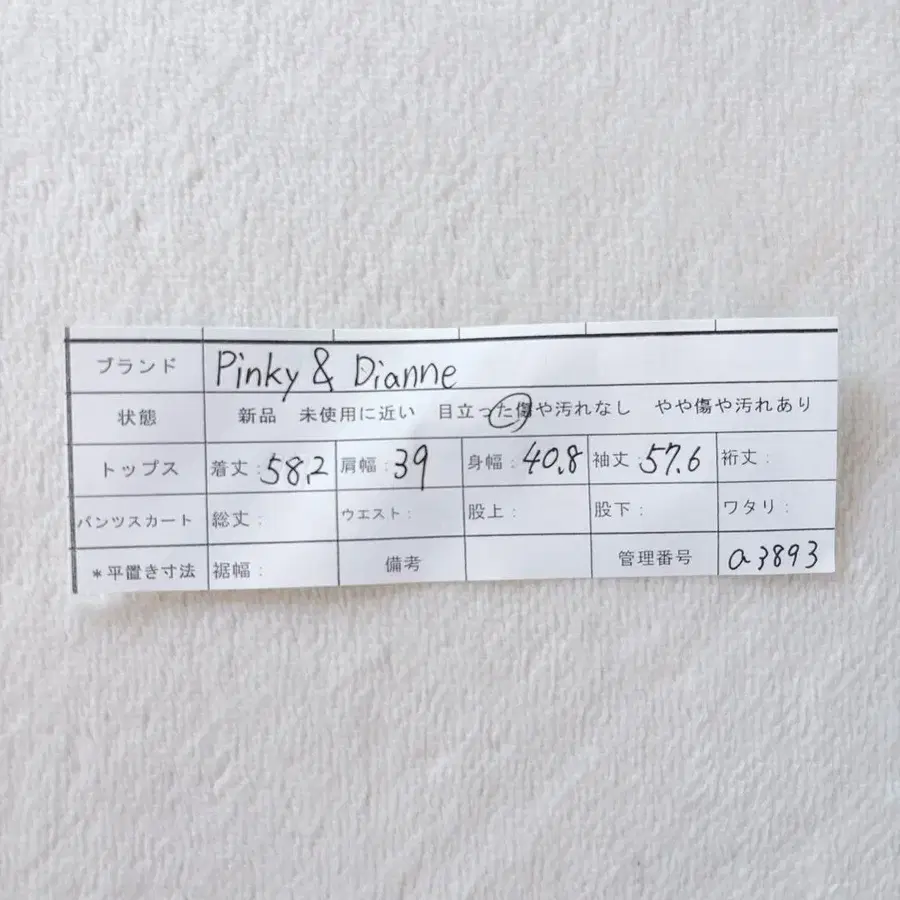 ブランド Pinky & Dianne
状態 新品 未使用に近い 目立った傷や汚れなし やや傷や汚れあり
トップス 着丈:58.2 肩幅:39 身幅:40.8 袖丈:57.6 裄丈:
パンツスカート 総丈: ウエスト: 股上: 股下: ワタリ:
*平置き寸法 裾幅: 備考 管理番号 a3893